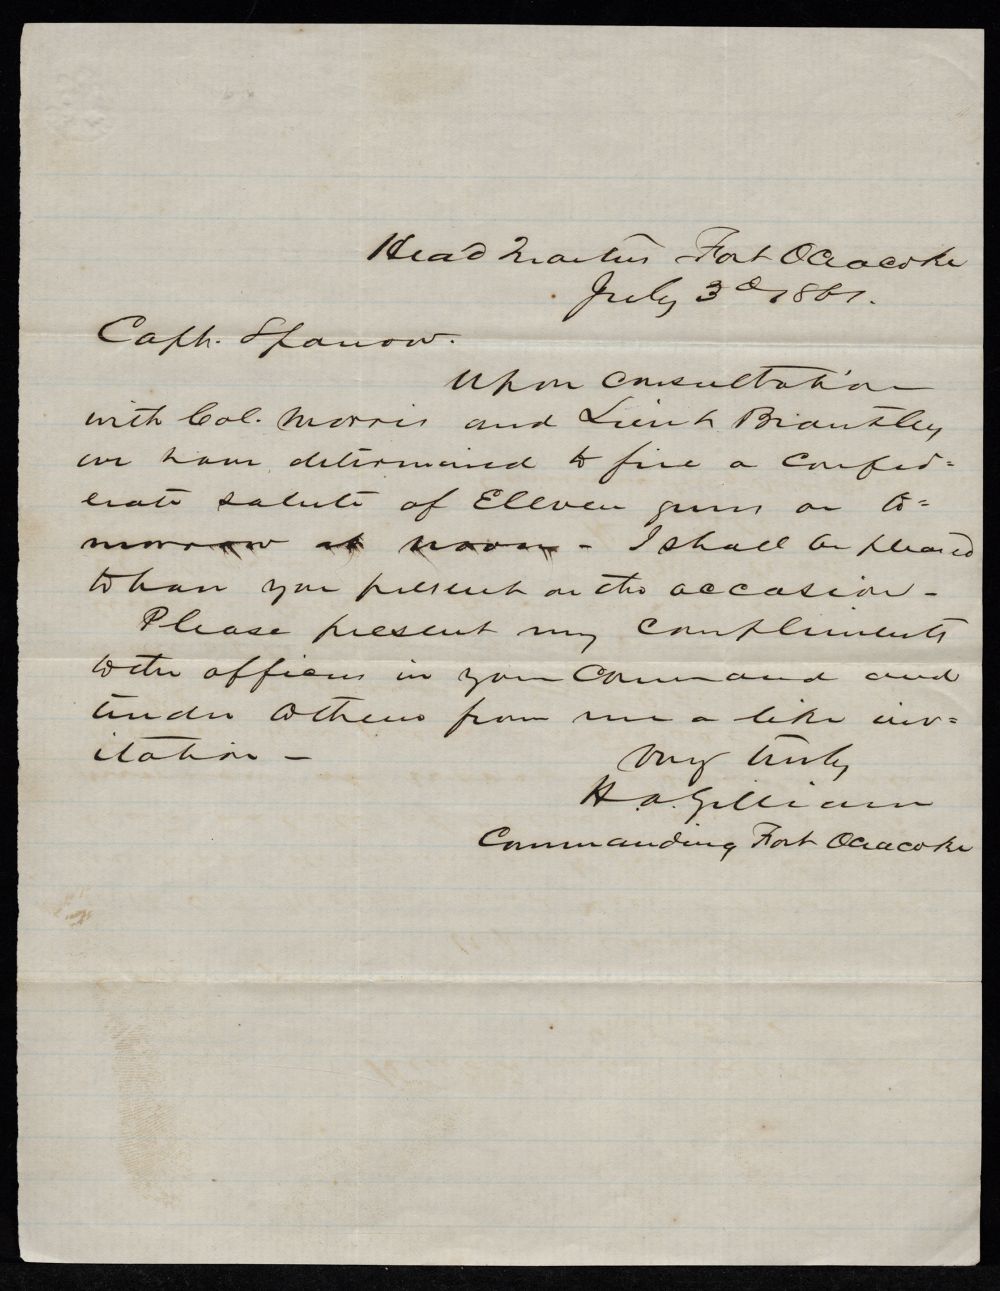 Head Quarters Fort Ocracoke
July 3d 1861.
Capt. Sparrow.
Upon consultation
with Col. Morris and Lieut Brantley
we have determined to fire a Confed=
erate salute of Eleven guns on to=
morrow at noon - I shall be pleased
to have you present on the occasion -
Please present my compliments
to the officers in your Command and
tender to them from me a like inv=
itation -
Very truly
H.A. Gilliam
Commanding Fort Ocracoke